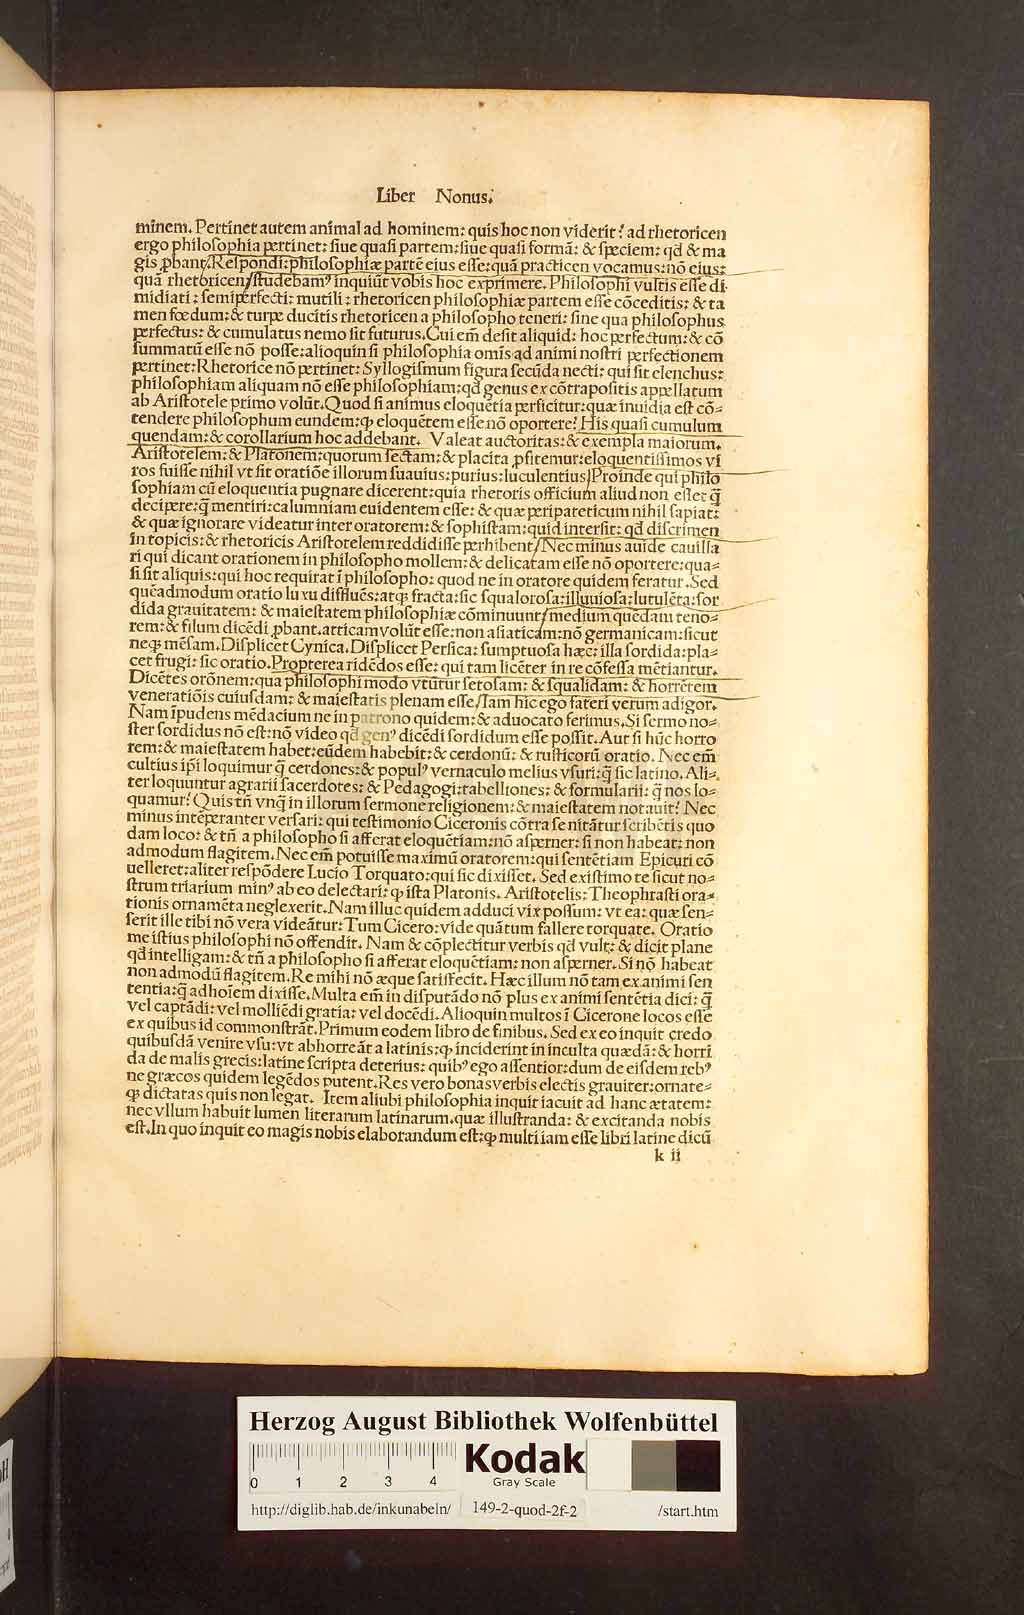 Liber Nonus.
minem. Pertinet autem animal ad hominem: quis hoc non viderit? ad rhetoricen
ergo philosophia pertinet: siue quasi partem: siue quasi formã: & speciem: qđ & ma
gis ꝓbant/Respondi: philosophiæ partẽ eius esse: quã practicen vocamus: nõ eius:
quã rhetoricen/studebamꝰ inquiũt vobis hoc exprimere. Philosophi vultis esse di
midiati: semiperfecti: mutili: rhetoricen philosophiæ partem esse cõceditis: & ta
men fœdum: & turpe ducitis rhetoricen a philosopho teneri: sine qua philosophus
perfectus: & cumulatus nemo sit futurus. Cui em̃ desit aliquid: hoc perfectum: & cõ
summatũ esse nõ posse: alioquin si philosophia omis ad animi nostri perfectionem
pertinet: Rhetorice nõ pertinet: Syllogismum figura secũda necti: qui sit elenchus:
philosophiam aliquam nõ esse philosophiam: qđ genus ex cõtrapositis appellatum
ab Aristotele primo volũt. Quod si animus eloquẽtia perficitur: quæ inuidia est cõ-
tendere philosophum eundem: ꝙ eloquẽtem esse nõ oportere? His quasi cumulum
quendam: & corollarium hoc addebant. Valeat auctoritas: & exempla maiorum.
Aristotelem: & Platonem: quorum sectam: & placita ꝓfitemur: eloquentissimos vi
ros fuisse nihil vt sit oratiõe illorum suauius: purius: luculentius/Proinde qui philo
sophiam cũ eloquentia pugnare dicerent: quia rhetoris officium aliud non esset q̃
decipere: q̃ mentiri: calumniam euidentem esse: & quæ peripateticum nihil sapiat:
& quæ ignorare videatur inter oratorem: & sophistam: quid intersit: qđ discrimen
in topicis: & rhetoricis Aristotelem reddidisse perhibent/Nec minus auide cauilla
ri qui dicant orationem in philosopho mollem: & delicatam esse nõ oportere: qua-
si sit aliquis: qui hoc requirat ĩ philosopho: quod ne in oratore quidem feratur. Sed
quẽadmodum oratio luxu difflués: atqꝫ fracta: sic squalorosa: illuuiosa: lutulẽta: sor
dida grauitatem: & maiestatem philosophiæ cõminuunt/medium quẽdam teno-
rem: & filum dicẽdi ꝓbant. atticam volũt esse: non asiaticam: nõ germanicam: sicut
neqꝫ mẽsam. Displicet Cynica. Displicet Persica: sumptuosa hæc: illa sordida: pla-
cet frugi: sic oratio. Propterea ridẽdos esse: qui tam licẽter in re cõfessa mẽtiantur.
Dicẽtes orõnem: qua philosophi modo vtũtur setosam: & squalidam: & horrẽtem
venerationis cuiusdam: & maiestatis plenam esse/Iam hic ego fateri verum adigor.
Nam ĩpudens mẽdacium ne in patrono quidem: & aduocato ferimus. Si sermo no-
ster sordidus nõ est: nõ video qđ genꝰ dicẽdi sordidum esse possit. Aut si hũc horro
rem: & maiestatem habet: eũdem habebit: & cerdonũ: & rusticorũ oratio. Nec em̃
cultius ip̃i loquimur q̃ cerdones: & populꝰ vernaculo melius vsuri: q̃ sic latino. Ali-
ter loquuntur agrarii sacerdotes: & Pedagogi: tabelliones: & formularii: q̃ nos lo-
quamur? Quis tñ vnq̃ in illorum sermone religionem: & maiestatem notauit? Nec
minus intẽperanter versari: qui testimonio Ciceronis cõtra se nitãtur scribẽtis quo
dam loco: & tñ a philosopho si afferat eloquẽtiam: nõ asperner: si non habeat: non
admodum flagitem. Nec em̃ potuisse maximũ oratorem: qui sentẽtiam Epicuri cõ
uelleret: aliter respõdere Lucio Torquato: qui sic dixisset. Sed existimo te sicut no-
strum triarium minꝰ ab eo delectari: ꝙ ista Platonis. Aristotelis: Theophrasti ora-
tionis ornamẽta neglexerit. Nam illuc quidem adduci vix possum: vt ea: quæ sen-
serit ille tibi nõ vera videãtur: Tum Cicero: vide quãtum fallere torquate. Oratio
me istius philosophi nõ offendit. Nam & cõplectitur verbis qđ vult: & dicit plane
qđ intelligam: & tñ a philosopho si afferat eloquẽtiam: non asperner. Si nõ habeat
non admodũ flagitem. Re mihi nõ æque satisfecit. Hæc illum nõ tam ex animi sen
tentia: q̃ ad hoiem dixisse. Multa em̃ in disputãdo nõ plus ex animi sentẽtia dici: q̃
vel captãdi: vel molliẽdi gratia: vel docẽdi. Alioquin multos ĩ Cicerone locos esse
ex quibus id commonstrãt. Primum eodem libro de finibus. Sed ex eo inquit credo
quibusdã venire vsu: vt abhorreãt a latinis: ꝙ inciderint in inculta quædã: & horri
da de malis grecis: latine scripta deterius: quibꝰ ego assentior: dum de eisdem rebꝰ
ne græcos quidem legẽdos putent. Res vero bonas verbis electis grauiter: ornate-
qꝫ dictatas quis non legat. Item aliubi philosophia inquit iacuit ad hanc ætatem:
nec vllum habuit lumen literarum latinarum. quæ illustranda: & excitanda nobis
est. In quo inquit eo magis nobis elaborandum est: ꝙ multi iam esse libri latine dicũ
k ii
Herzog August Bibliothek Wolfenbüttel
0 1 2 3 4
Kodak
Gray Scale
http://diglib.hab.de/inkunabeln/ 149-2-quod-2f-2 /start.htm